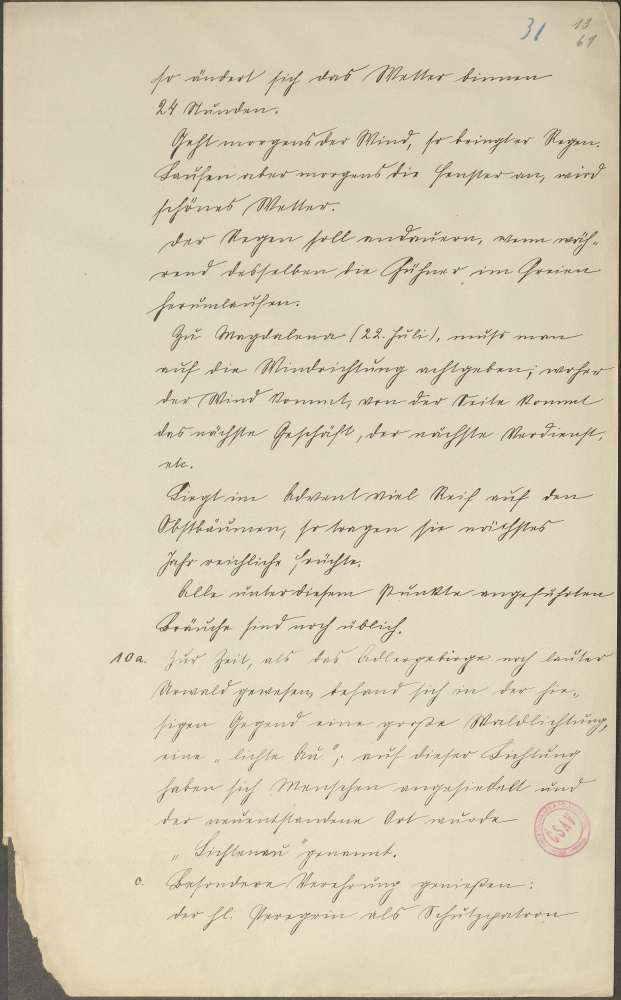 31 13
61
so ändert sich das Wetter binnen
24 Stunden.
Geht morgens der Wind, so bringt er Regen.
Laufen aber morgens die Fenster an, wird
schönes Wetter.
Der Regen soll andauern, wenn wäh-
rend desselben die Hühner im Freien
herumlaufen.
Zu Magdalena (22. Juli), muß man
auf die Windrichtung achtgeben; woher
der Wind kommt, von der Seite kommt
das nächste Geschäft, der nächste Verdienst,
etc.
Liegt im Advent viel Reif auf den
Obstbäumen, so tragen sie nächstes
Jahr reichliche Früchte.
Alle unter diesem Punkte angeführten
Bräuche sind noch üblich.
10a. Zur Zeit, als das Adlergebirge noch lauter
Urwald gewesen, befand sich in der hie-
sigen Gegend eine große Waldlichtung,
eine „lichte Au"; auf dieser Lichtung
haben sich Menschen angesiedelt und
der neuentstandene Ort wurde
„Lichtenau" genannt.
c. Besondere Verehrung genießen:
der hl. Peregrin als Schutzpatron
ČSAV